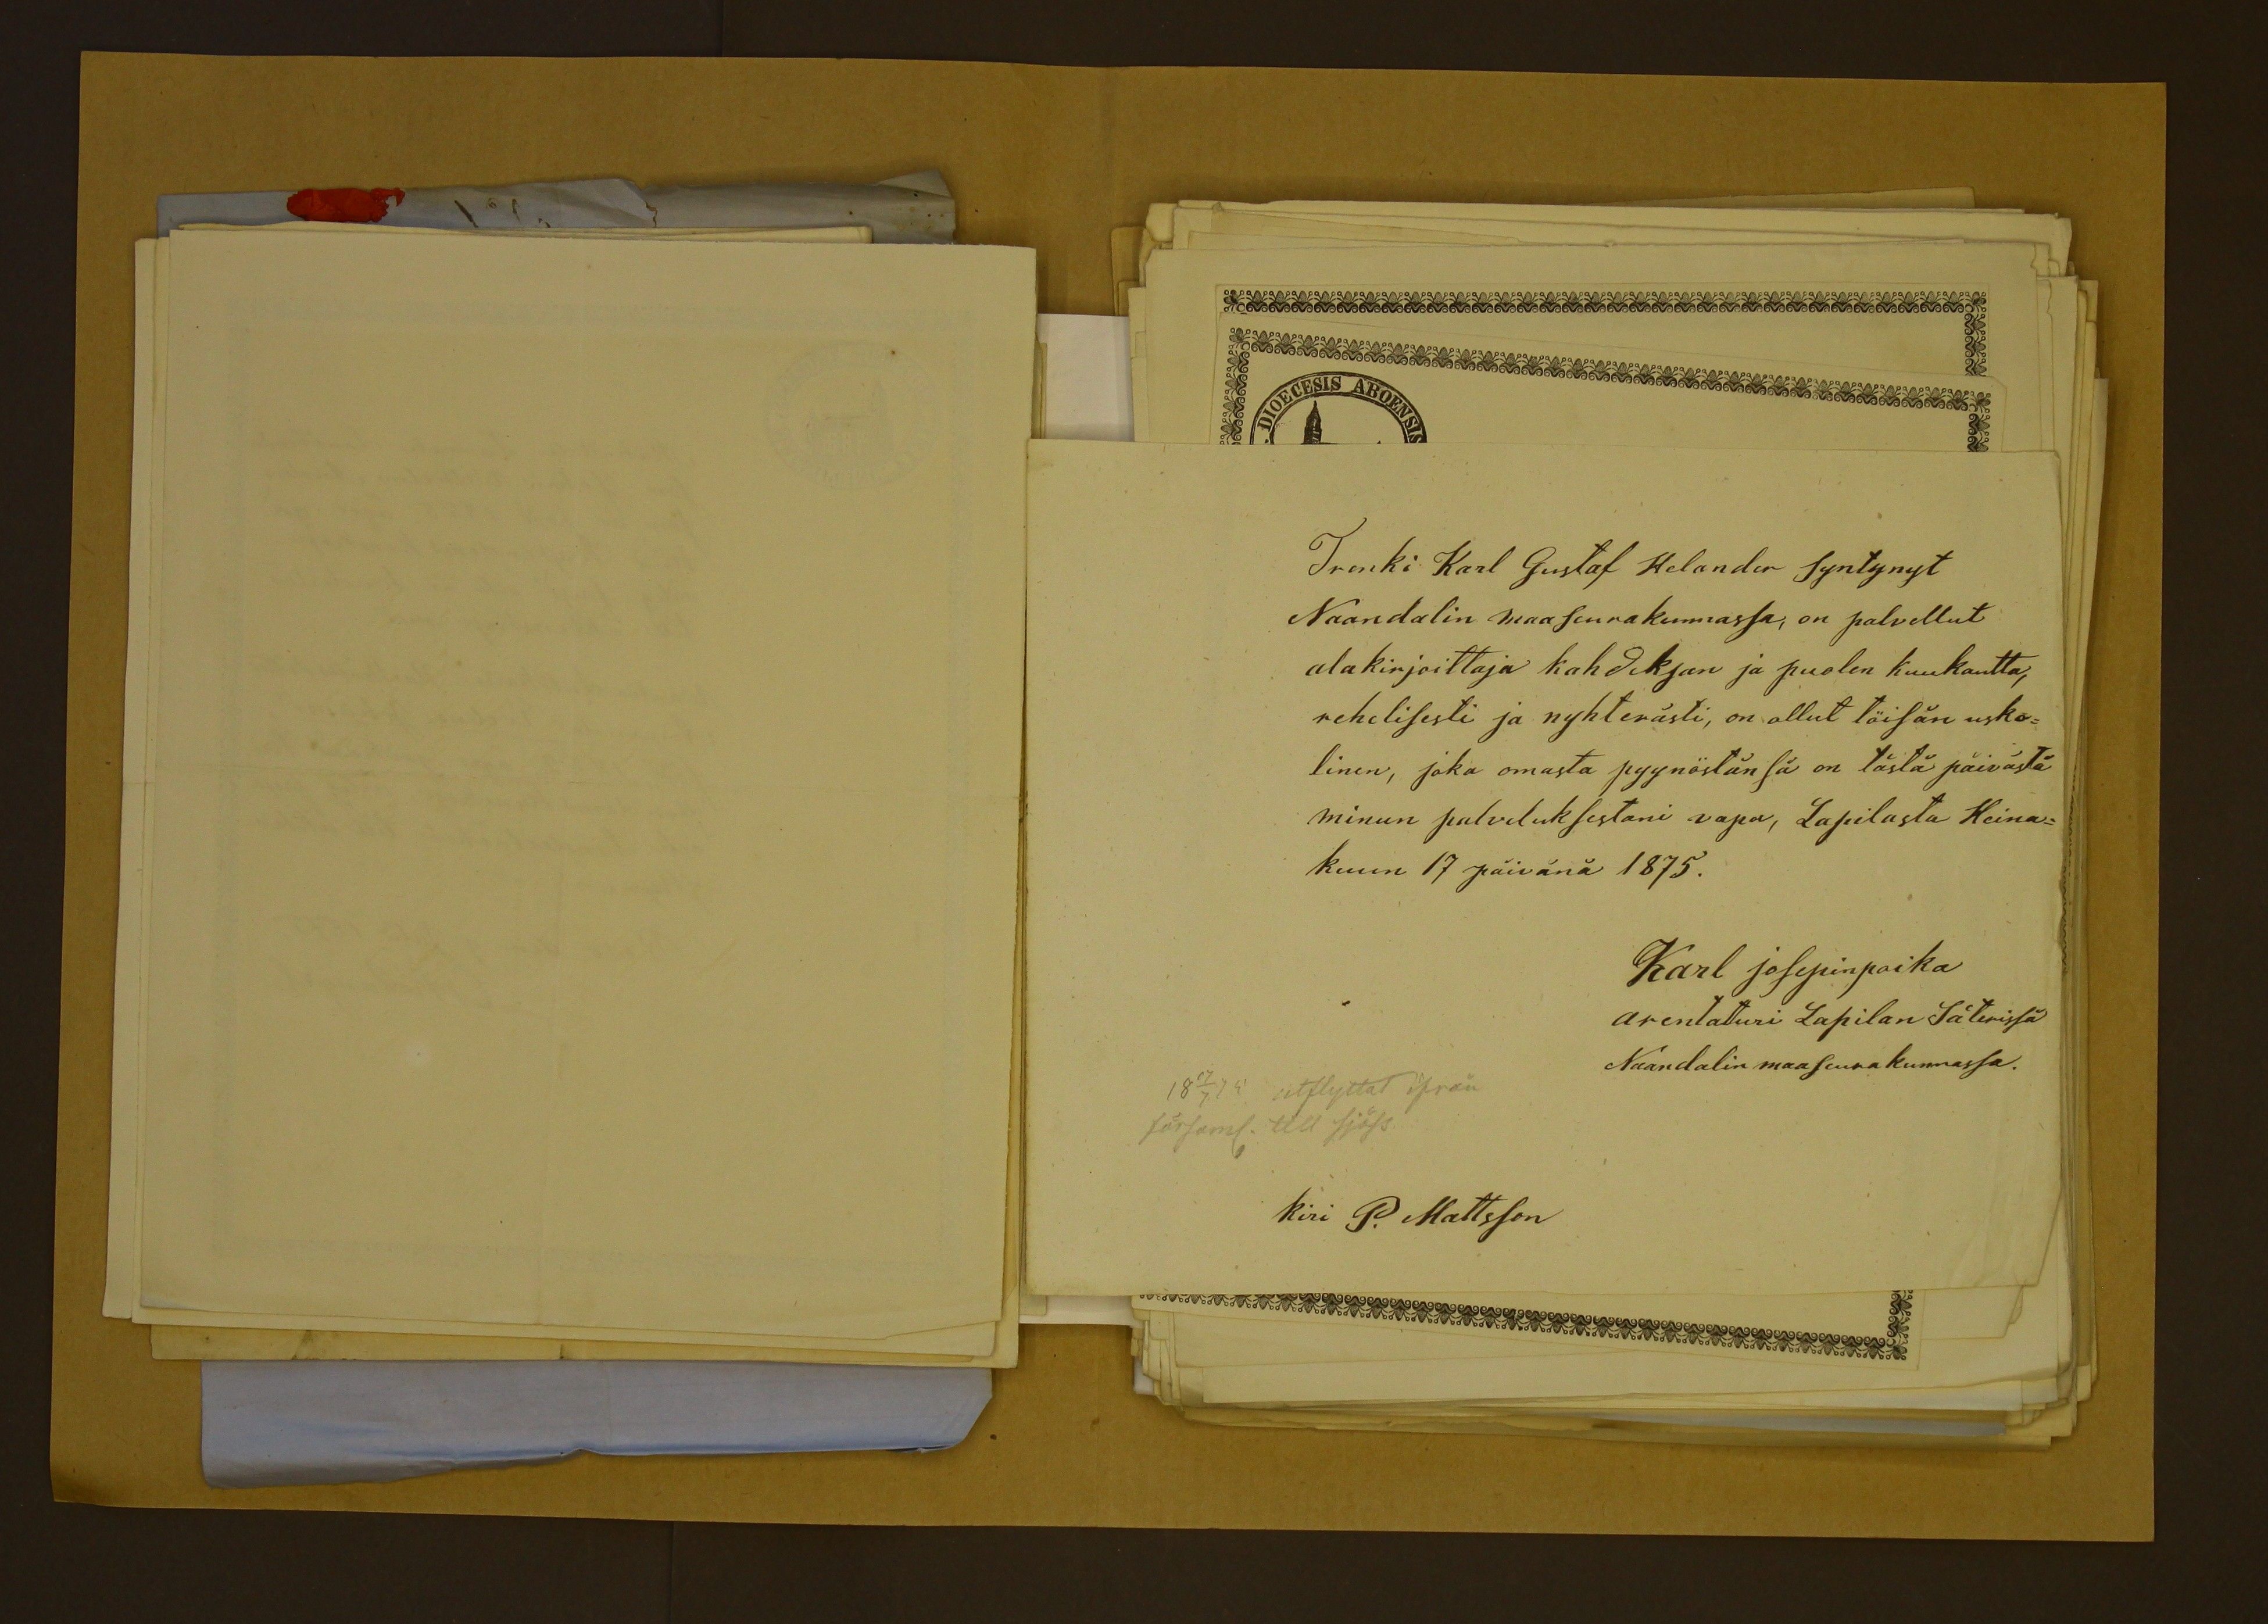 DIOECESIS ABOENSIS
Trenki Karl Gustaf Helander syntynyt
Naandalin maaseurakunnassa, on palvellut
alakirjoittaja kahdeksan ja puolen kuukautta,
rehelisesti ja nyhterästi, on ollut töisän usko=
linen, joka omasta pyynöstänsä on tästä päivästä
minun palveluksestani vapa, Lapilasta Heina=
kuun 17 päivänä 1875.
Karl josepinpoika
arentaturi Lapilan Säterissä
Naandalin maaseurakunnassa.
18 17/7 75 utflyttat ifrån
församl. till sjöss
kiri P. Mattsson